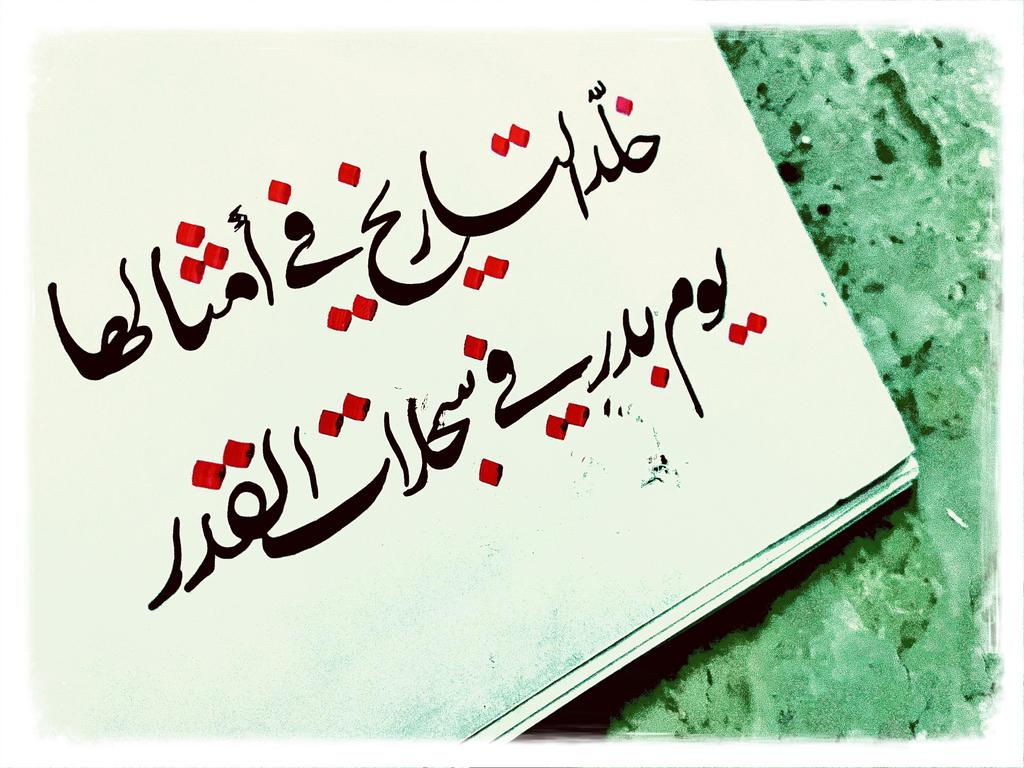 خلّد التاريخ في أمثالها
يوم بدر في سجلات القدر